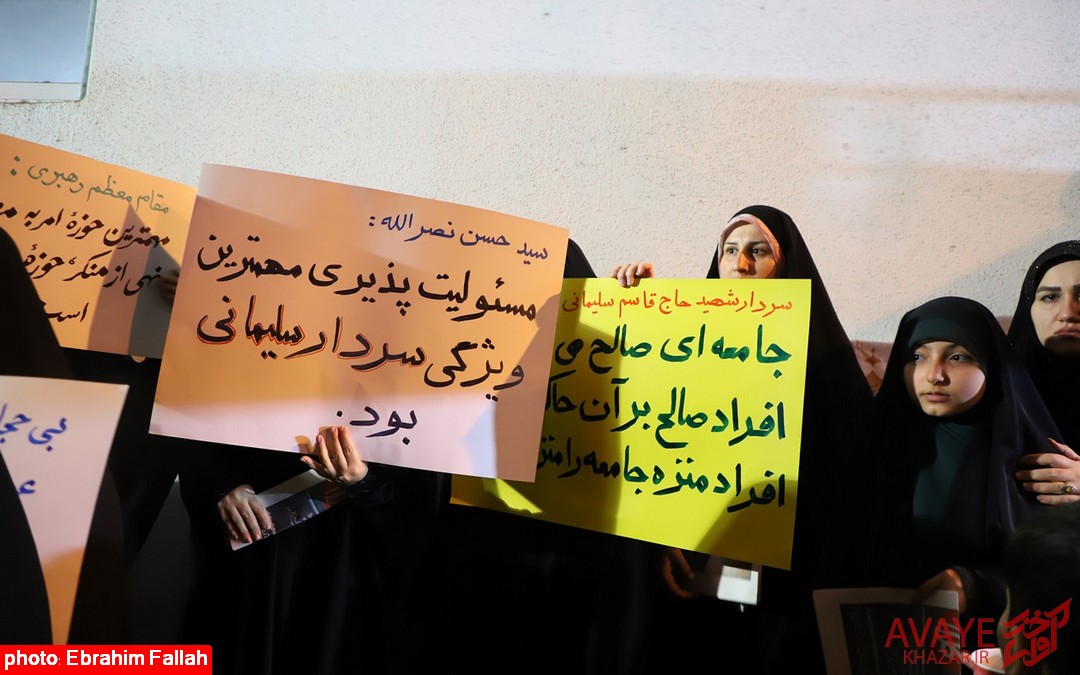 مقام معظم رهبری :
مهمترین حوزهٔ امر به
نهی از منکر، حوزهٔ
است
سید حسن نصر الله:
مسئولیت پذیری مهمترین
ویژگی سردار سلیمانی
بود.
سردار شهید حاج قاسم سلیمانی
جامعه ای صالح می
افراد صالح بر آن
افراد منزه جامعه را
بی
photo: Ebrahim Fallah
AVAYE
KHAZAR.IR